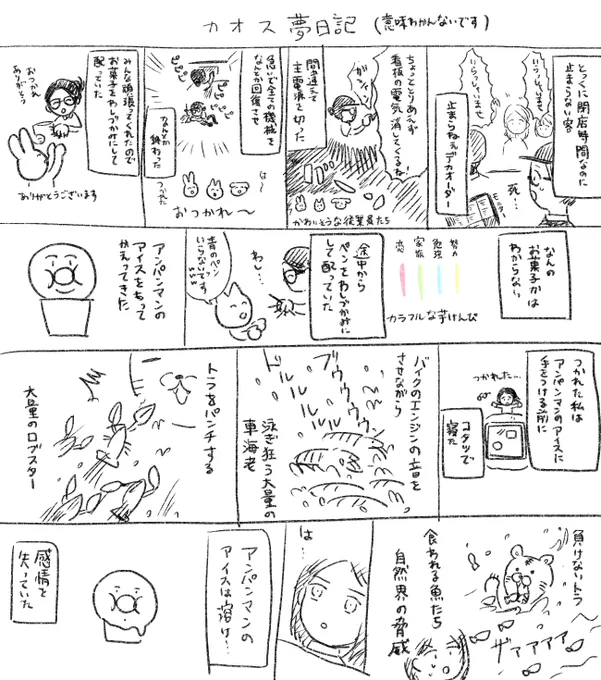 カオス夢日記(意味わかんないです)
とっくに閉店時間なのに
止まらない客
いらっしゃいませ
いらっしゃいませ
死…
止まらねぇデカオーダー
ちょっととりあえず
看板の電気消してくるね!
ガシャン
間違えて
主電源を切った
かわいそうな従業員たち
急いで全ての機械を
なんとか回復させ
ピピピ
ピピピ
なんか
終わった
は〜
つかれた
おつかれ〜
みんな頑張ってくれたので
お菓子をわしづかみにして
配っていた
おつかれ
ありがとう
ありがとうございます
なんの
お菓子かは
わからない
勉強
家族
恋
カラフルな芋けんぴ
途中から
ペンをわしづかみに
して配っていた
わし…
青のペン
いらないです
アンパンマンの
アイスをもって
かえってきた
つかれた私は
アンパンマンのアイスに
手をつける前に
つかれた…
コタツで
寝た
バイクのエンジンの音を
させながら
ブウウウウウ
ドルルルル
泳ぎ狂う大量の
車海老
トラをパンチする
大量のロブスター
負けないトラ
ザァアアア
食われる魚たち
自然界の脅威
は…
アンパンマンの
アイスは溶け…
感情を
失っていた